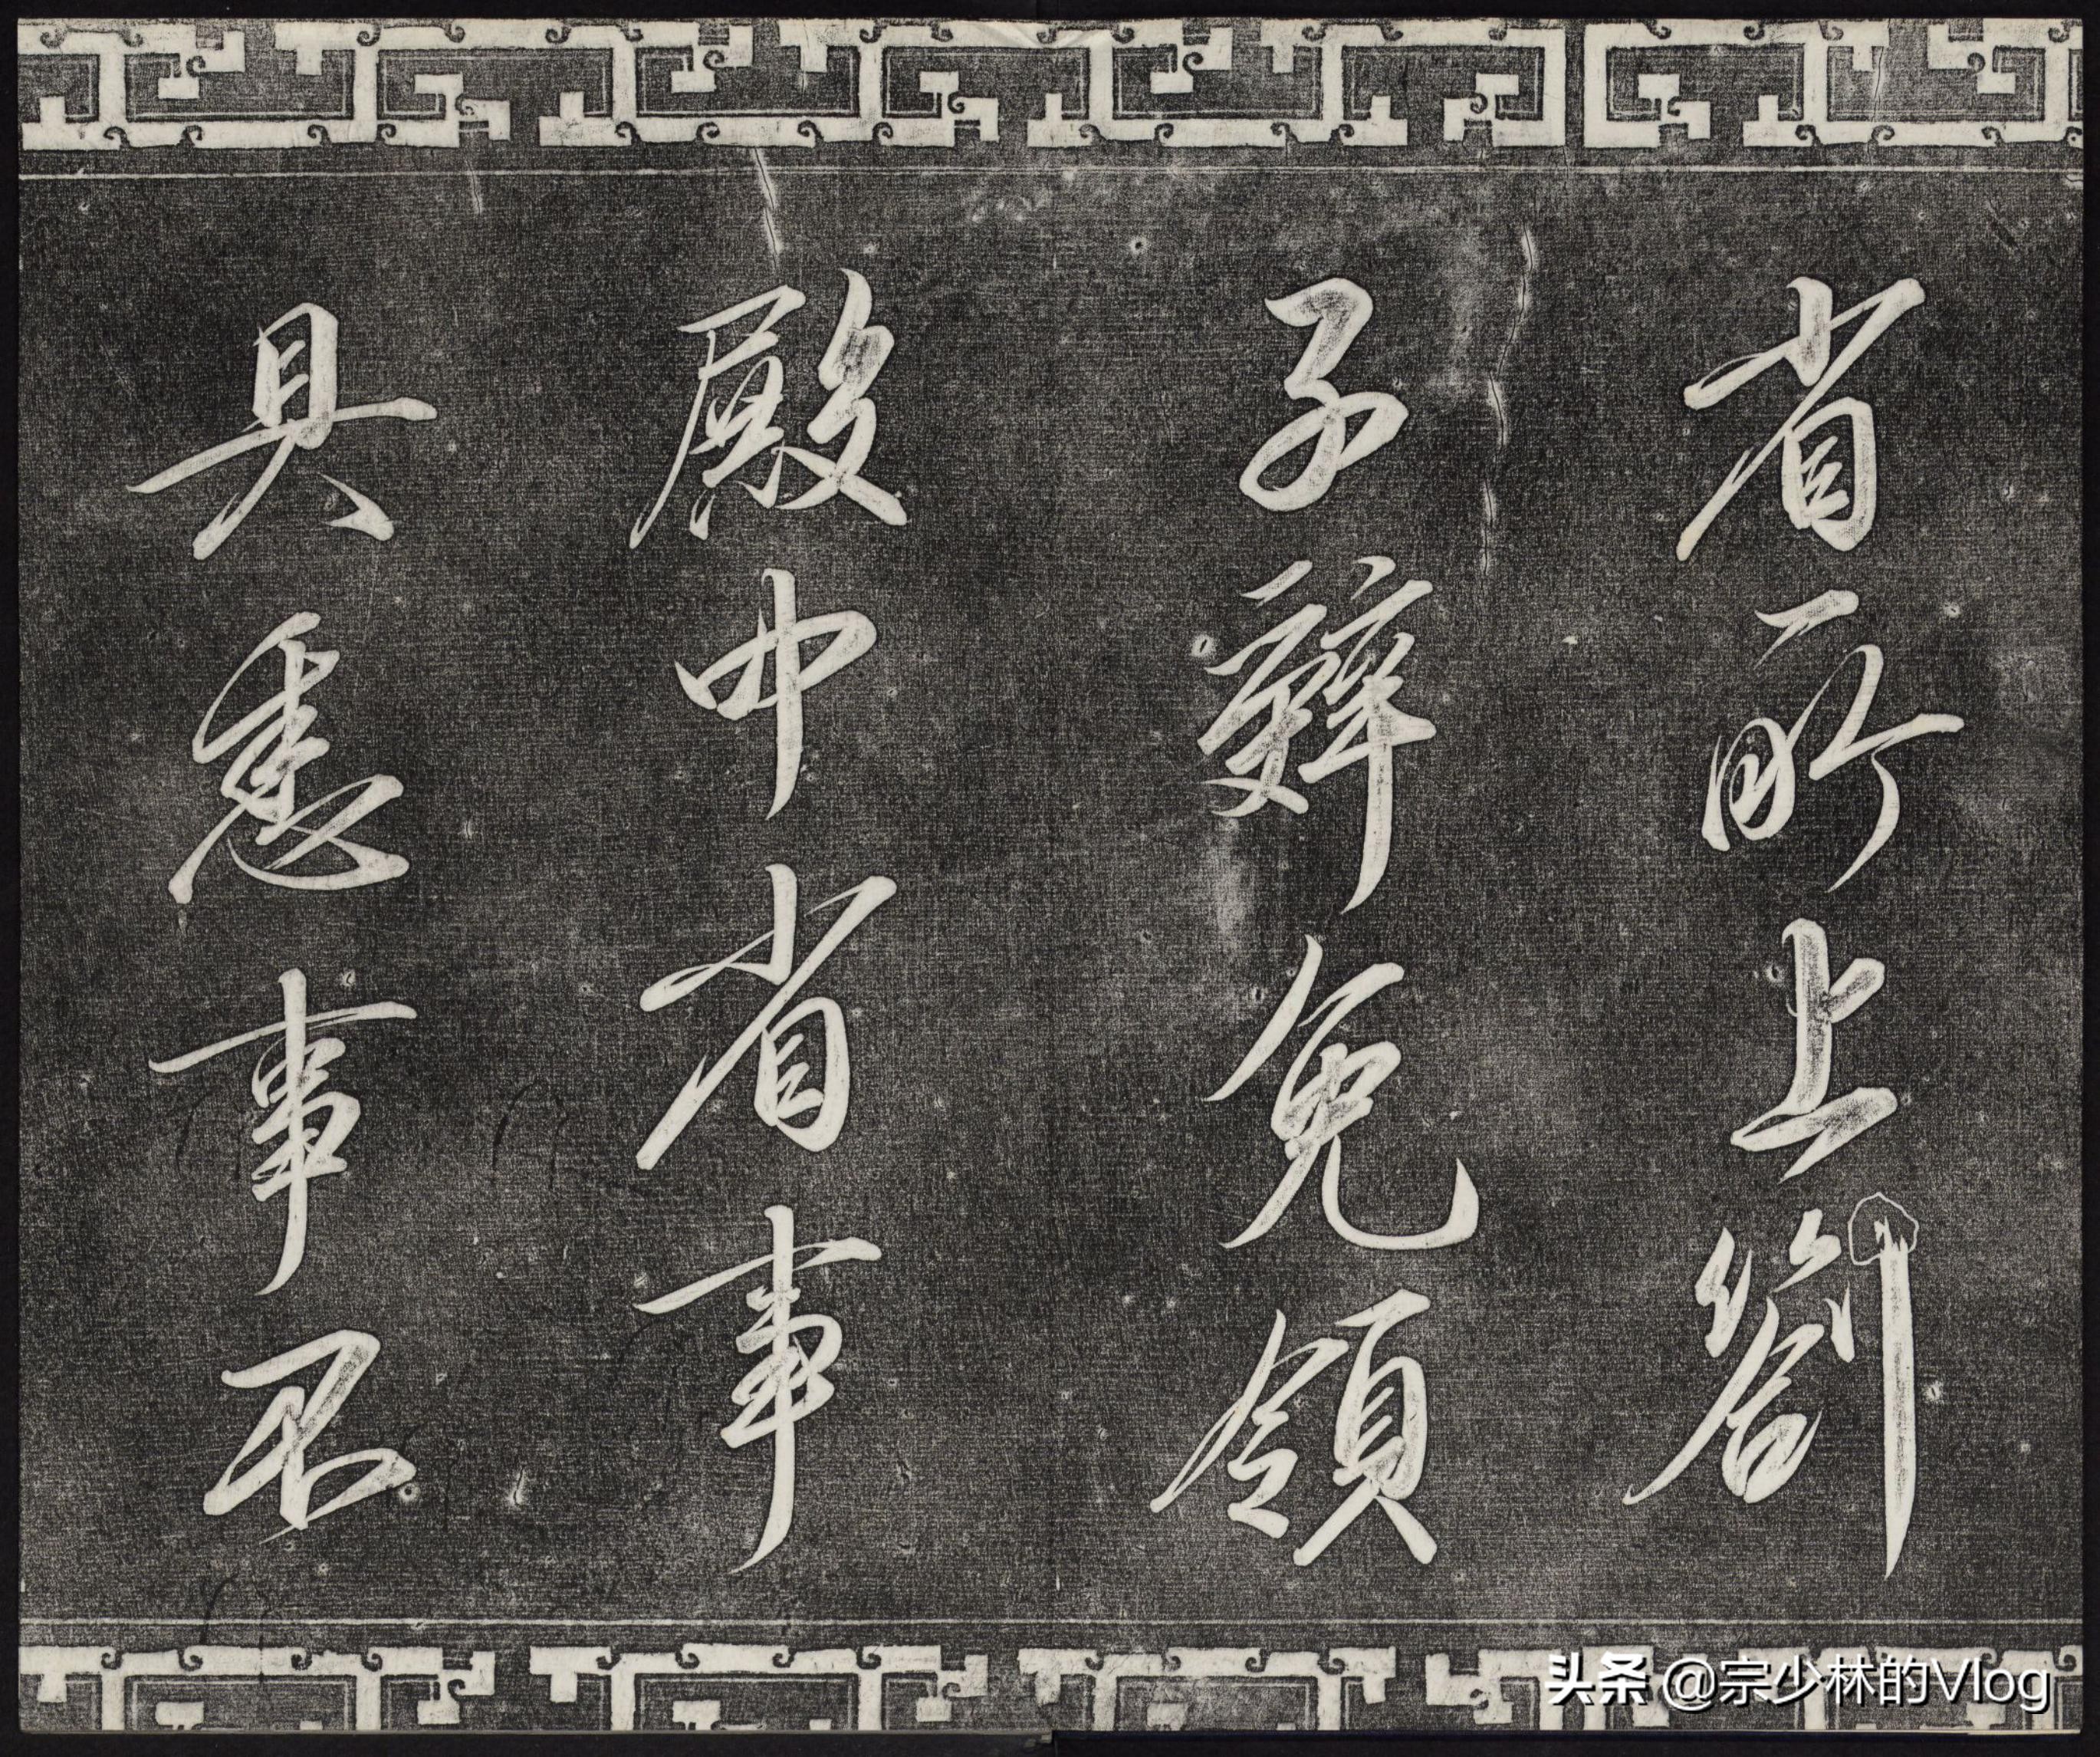 省所上劄
子辤免領
殿中省事
具悉事不
头条 @宗少林的Vlog